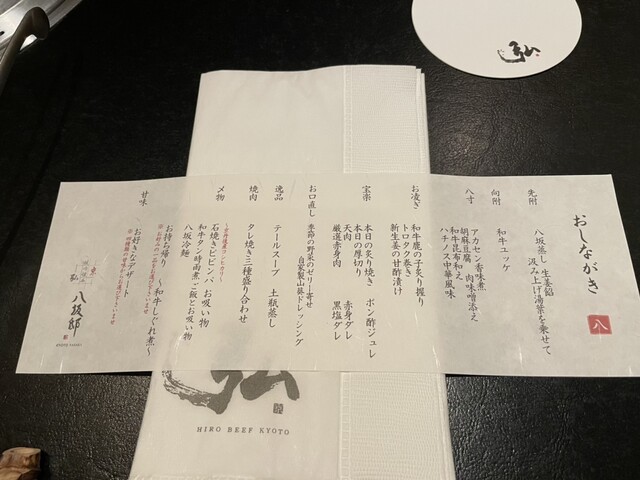 弘
おしながき
八
先附
八坂蒸し 生姜餡
汲み上げ湯葉を乗せて
向附
和牛ユッケ
八寸
アカセン香味煮
胡麻豆腐 肉味噌添え
和牛昆布和え
ハチノス中華風味
お凌ぎ
和牛鹿の子炙り握り
トロタク巻き
新生姜の甘酢漬け
宝楽
本日の炙り焼き ポン酢ジュレ
本日の厚切り
天肉 赤身ダレ
厳選赤身肉 黒塩ダレ
お口直し
季節の野菜のゼリー寄せ
自家製山葵ドレッシング
逸品
テールスープ 土瓶蒸し
焼肉
タレ焼き三種盛り合わせ
〆物
石焼きビビンバ お吸い物
和牛タン時雨煮ご飯とお吸い物
八坂冷麺
お持ち帰り 〜和牛しぐれ煮〜
甘味
お好きなデザート
八坂邸
弘
HIRO BEEF KYOTO